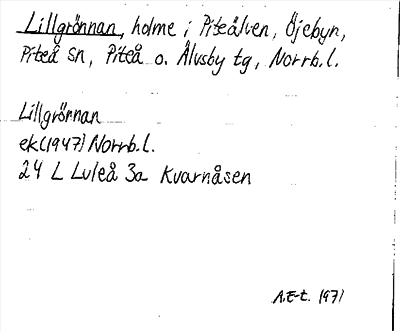 Lillgrönnan, holme i Piteälven, Öjebyn,
Piteå sn, Piteå o. Älvsby tg, Norrb.l.
Lillgrönnan
ek(1947) Norrb.l.
24 L Luleå 3a Kvarnåsen
A.E-t. 1971